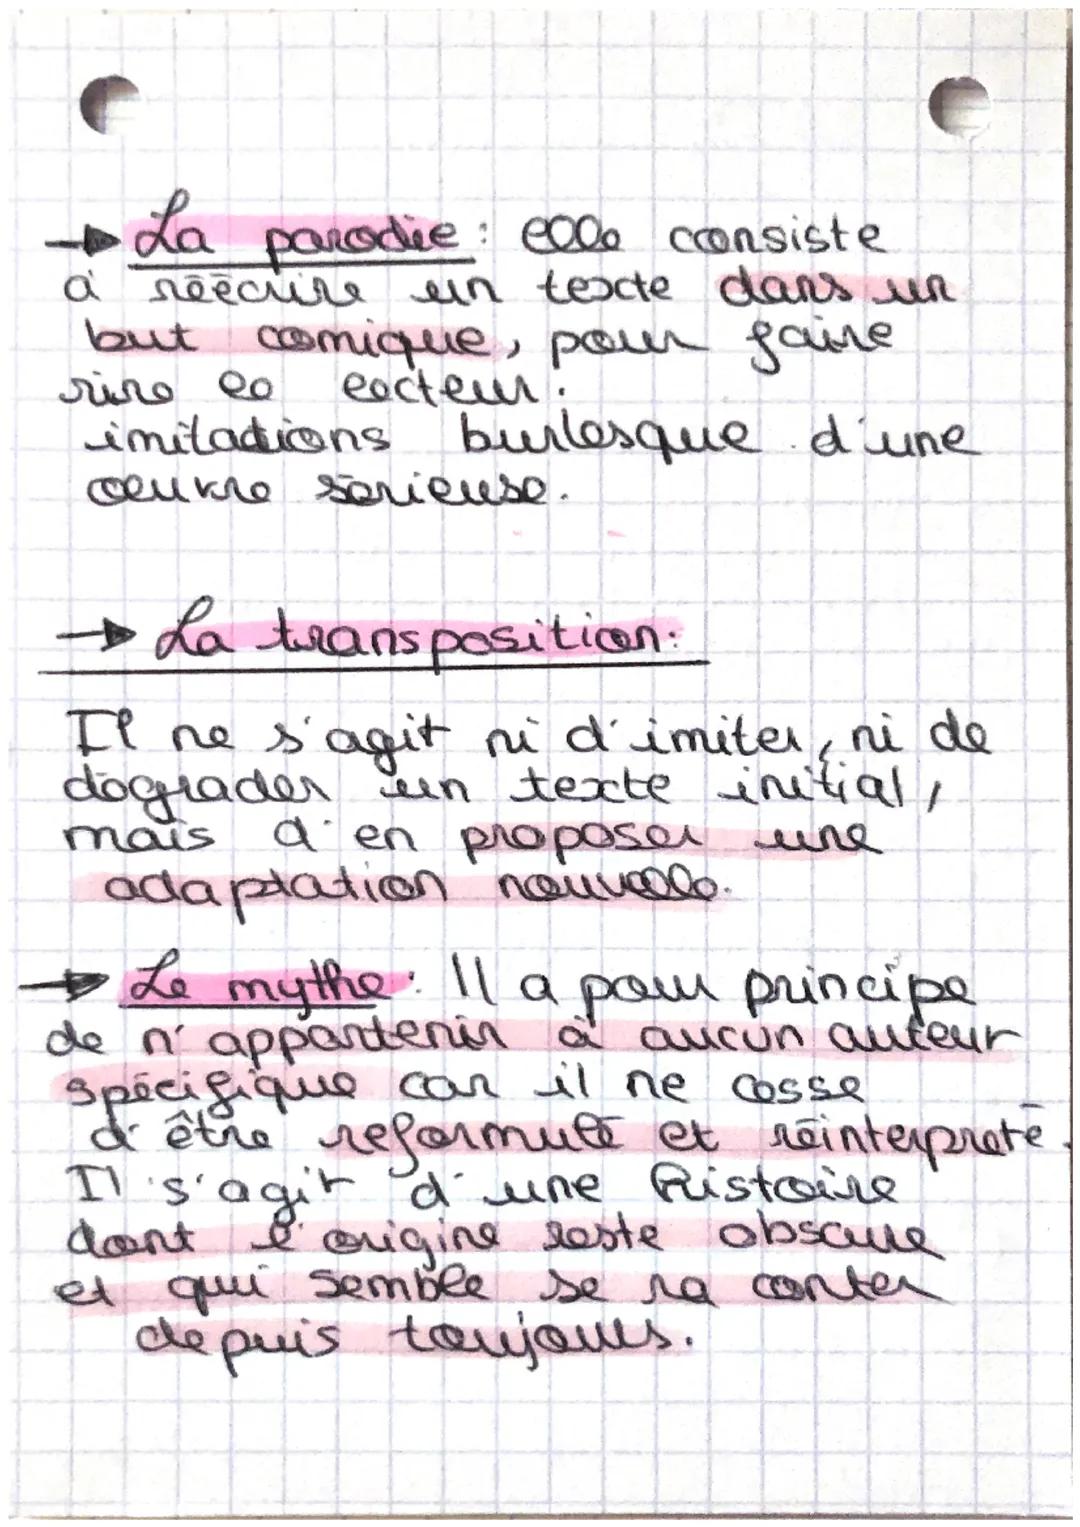 → La parodie : elle consiste
à réécrire un texte dans un
but comique, pour faire
rire le lecteur.
imitations burlesque d'une
œuvre sérieuse.
→ La transposition.
Il ne s'agit ni d'imiter, ni de
dégrader un texte initial,
mais d'en proposer une
adaptation nouvelle.
→ Le mythe : Il a pour principe
de n'appartenir à aucun auteur
spécifique car il ne cesse
d'être reformulé et réinterpreté.
Il s'agit d'une histoire
dont l'origine reste obscure
et qui semble se raconter
depuis toujours.